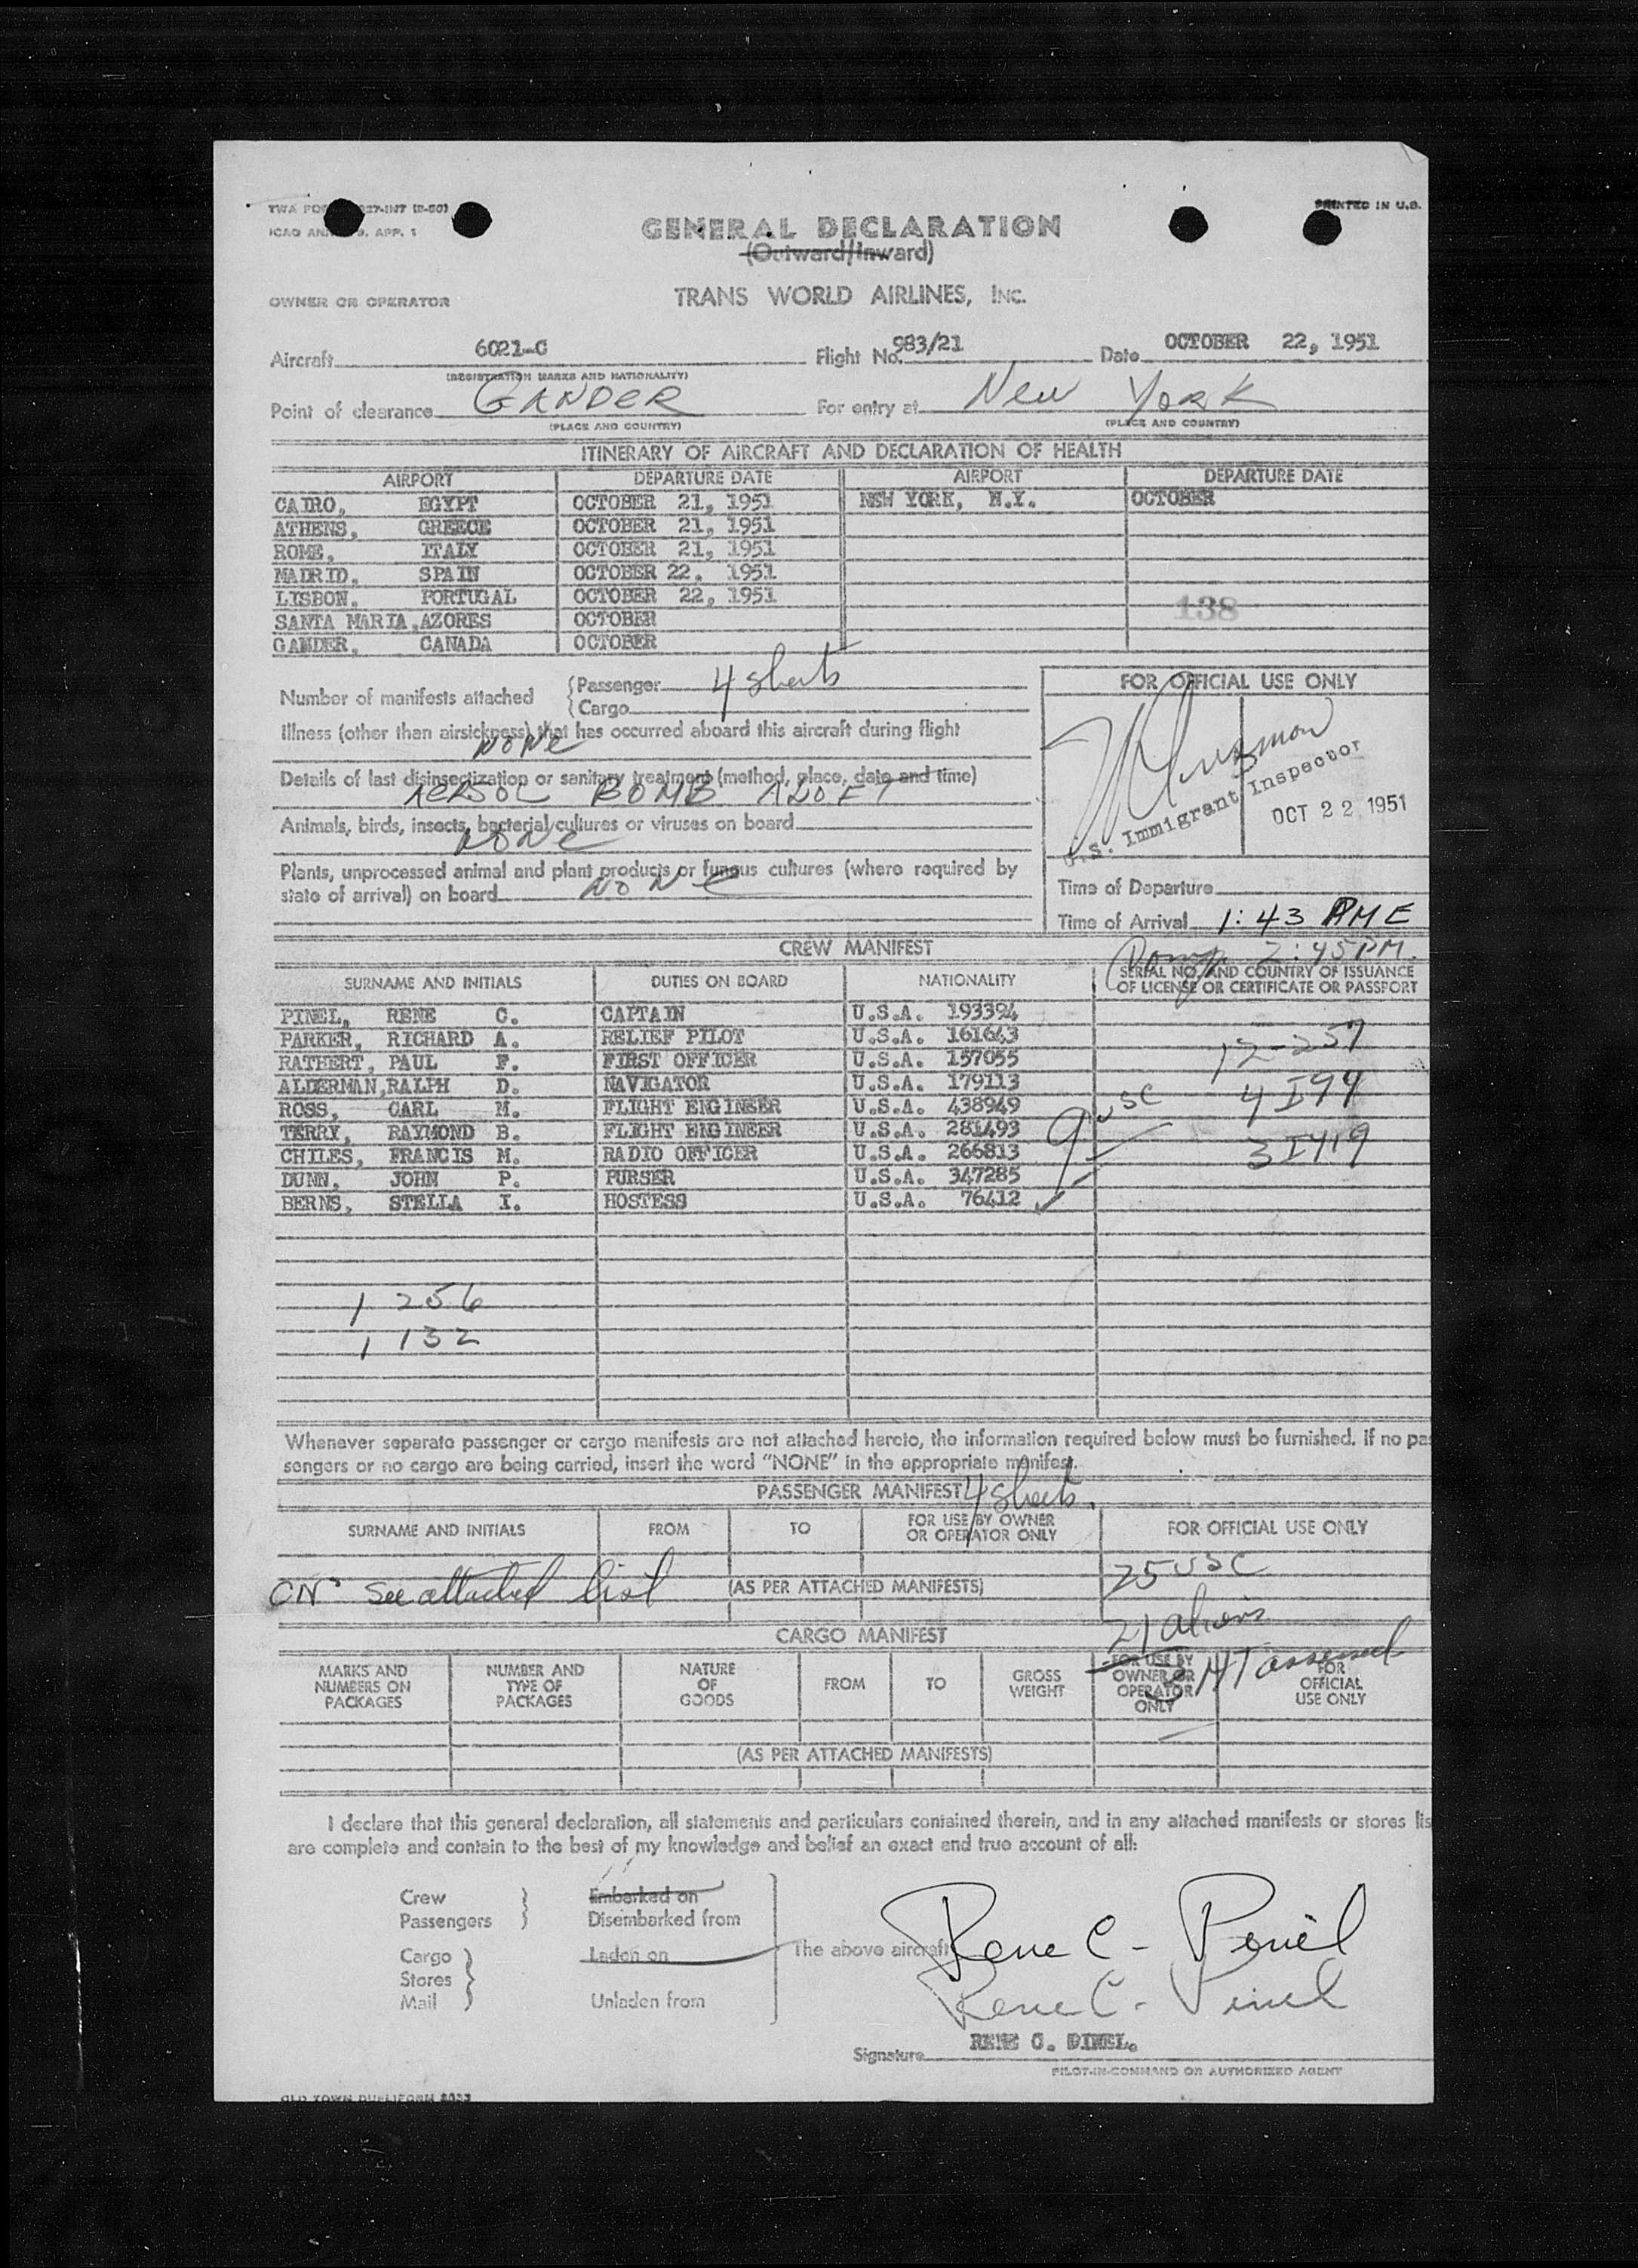 PRINTED IN U.S.
ICAO
APP. 1
GENERAL DECLARATION
(Outward/Inward)
OWNER OR OPERATOR TRANS WORLD AIRLINES, INC.
Aircraft 6021-C Flight No. 983/21 Date OCTOBER 22, 1951
(REGISTRATION MARKS AND NATIONALITY)
Point of clearance GANDER For entry at New York
(PLACE AND COUNTRY) (PLACE AND COUNTRY)
ITINERARY OF AIRCRAFT AND DECLARATION OF HEALTH
AIRPORT DEPARTURE DATE AIRPORT DEPARTURE DATE
CAIRO, EGYPT OCTOBER 21, 1951 NEW YORK, N.Y. OCTOBER
ATHENS, GREECE OCTOBER 21, 1951
ROME, ITALY OCTOBER 21, 1951
MADRID, SPAIN OCTOBER 22, 1951
LISBON, PORTUGAL OCTOBER 22, 1951
138
SANTA MARIA, AZORES OCTOBER
GANDER, CANADA OCTOBER
Number of manifests attached (Passenger 4 sheets
(Cargo
FOR OFFICIAL USE ONLY
Illness (other than airsickness) that has occurred aboard this aircraft during flight
NONE
Details of last disinsectization or sanitary treatment (method, place, date and time)
AERSOL BOMB ALOFT
Animals, birds, insects, bacterial cultures or viruses on board
NONE
Plants, unprocessed animal and plant products or fungus cultures (where required by
state of arrival) on board NONE
U.S. Immigrant Inspector
OCT 22 1951
Time of Departure
Time of Arrival 1:43 PM E
2:45 PM.
CREW MANIFEST
SURNAME AND INITIALS DUTIES ON BOARD NATIONALITY SERIAL NO. AND COUNTRY OF ISSUANCE
OF LICENSE OR CERTIFICATE OR PASSPORT
PINEL, RENE C. CAPTAIN U.S.A. 193394
PARKER, RICHARD A. RELIEF PILOT U.S.A. 161643
RATHERT, PAUL F. FIRST OFFICER U.S.A. 157055 12-257
ALDERMAN, RALPH D. NAVIGATOR U.S.A. 179113
ROSS, CARL M. FLIGHT ENGINEER U.S.A. 438949 9 USC 4 I 99
TERRY, RAYMOND B. FLIGHT ENGINEER U.S.A. 281493
CHILES, FRANCIS M. RADIO OFFICER U.S.A. 266813 3 I 419
DUNN, JOHN P. PURSER U.S.A. 347285
BERNS, STELLA I. HOSTESS U.S.A. 76412
1 256
1 132
Whenever separate passenger or cargo manifests are not attached hereto, the information required below must be furnished. If no pas
sengers or no cargo are being carried, insert the word "NONE" in the appropriate manifest.
PASSENGER MANIFEST 4 sheets.
SURNAME AND INITIALS FROM TO FOR USE BY OWNER
OR OPERATOR ONLY FOR OFFICIAL USE ONLY
See attached list (AS PER ATTACHED MANIFESTS) 25 USC
21 aliens
CARGO MANIFEST
HT assessed
MARKS AND
NUMBERS ON
PACKAGES
NUMBER AND
TYPE OF
PACKAGES
NATURE
OF
GOODS
FROM TO GROSS
WEIGHT
FOR USE BY
OWNER OR
OPERATOR
ONLY
FOR
OFFICIAL
USE ONLY
(AS PER ATTACHED MANIFESTS)
I declare that this general declaration, all statements and particulars contained therein, and in any attached manifests or stores lis
are complete and contain to the best of my knowledge and belief an exact and true account of all:
Crew Embarked on
Passengers Disembarked from
Cargo Laden on The above aircraft Rene C. Pinel
Stores
Mail Unladen from Rene C. Pinel
Signature RENE C. DINEL.
PILOT-IN-COMMAND OR AUTHORIZED AGENT